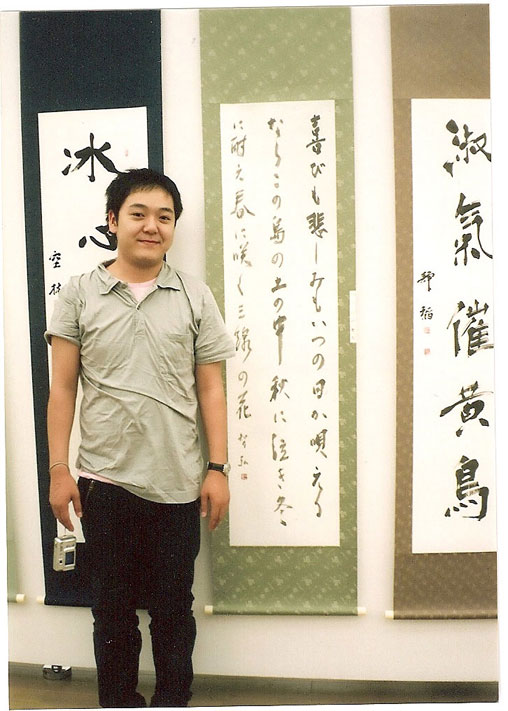 淑氣催黄鳥
喜びも悲しみもいつの日か唄える
ならこの島の土の中秋に泣き冬
に耐え春に咲く三線の花
冰心